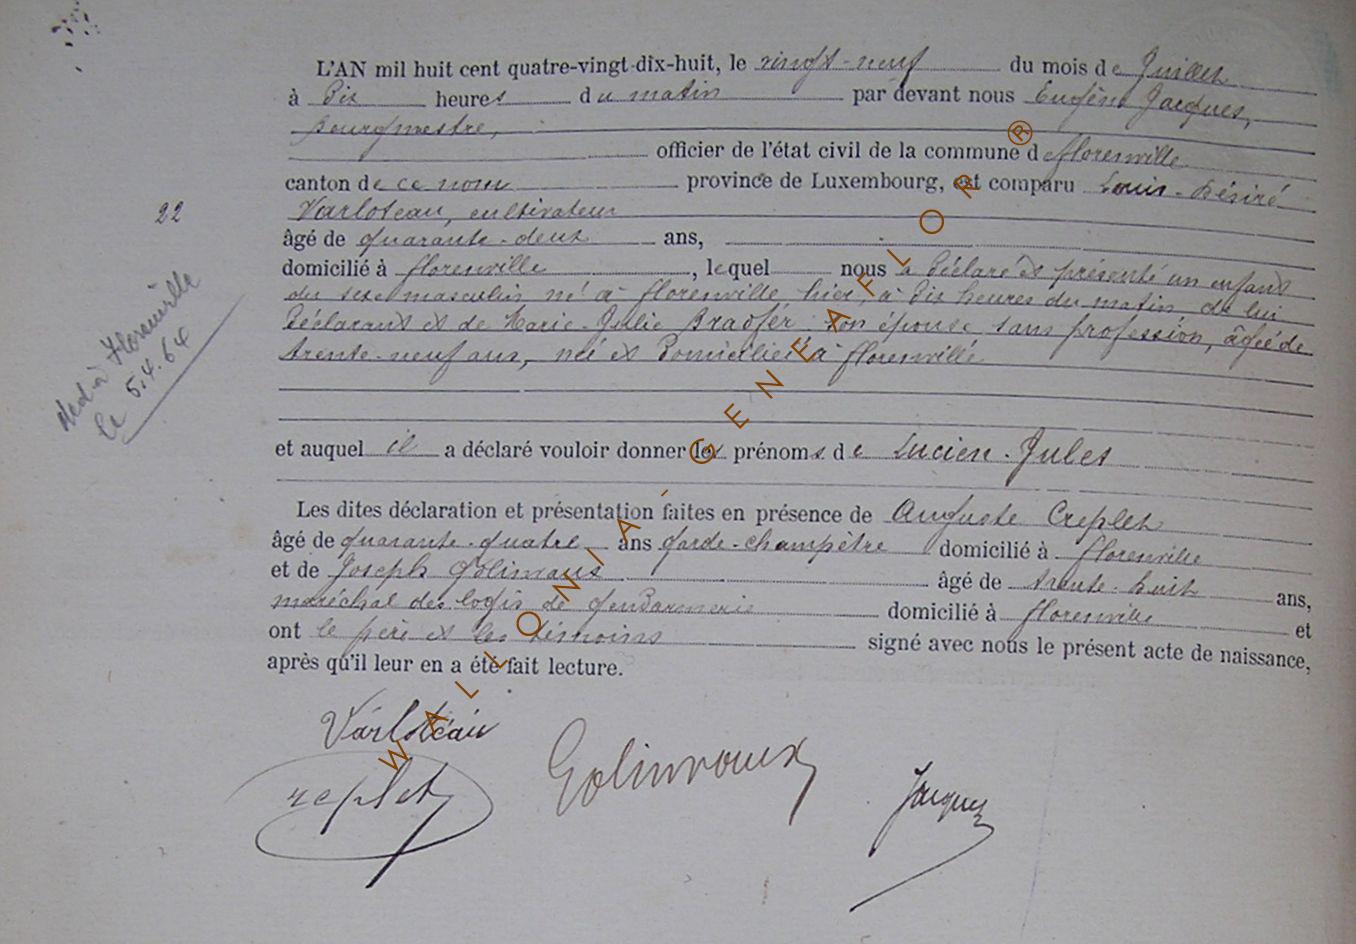 L'AN mil huit cent quatre-vingt-dix-huit, le vingt-neuf du mois de Juillet
à dix heures du matin par devant nous Eugène Jacques,
bourgmestre,
officier de l'état civil de la commune de Florenville
canton de ce nom province de Luxembourg, est comparu Louis-Désiré
22
Varloteau, cultivateur
âgé de quarante-deux ans,
domicilié à Florenville, lequel nous a déclaré et présenté un enfant
du sexe masculin né à Florenville, hier, à dix heures du matin de lui
déclarant et de Marie-Julie Bradfer son épouse, sans profession, âgée de
trente-neuf ans, née et domiciliée à Florenville
déd à Florenville
le 5.4.64
et auquel il a déclaré vouloir donner les prénoms de Lucien-Jules
Les dites déclaration et présentation faites en présence de Auguste Creplet
âgé de quarante-quatre ans garde-champêtre domicilié à Florenville
et de Joseph Golinvaux âgé de trente-huit ans,
maréchal des logis de gendarmerie domicilié à Florenville et
ont le père et les témoins signé avec nous le présent acte de naissance,
après qu'il leur en a été fait lecture.
Varloteau
Creplet Golinvaux Jacques
WALLONIA - GENEAFLOR ®